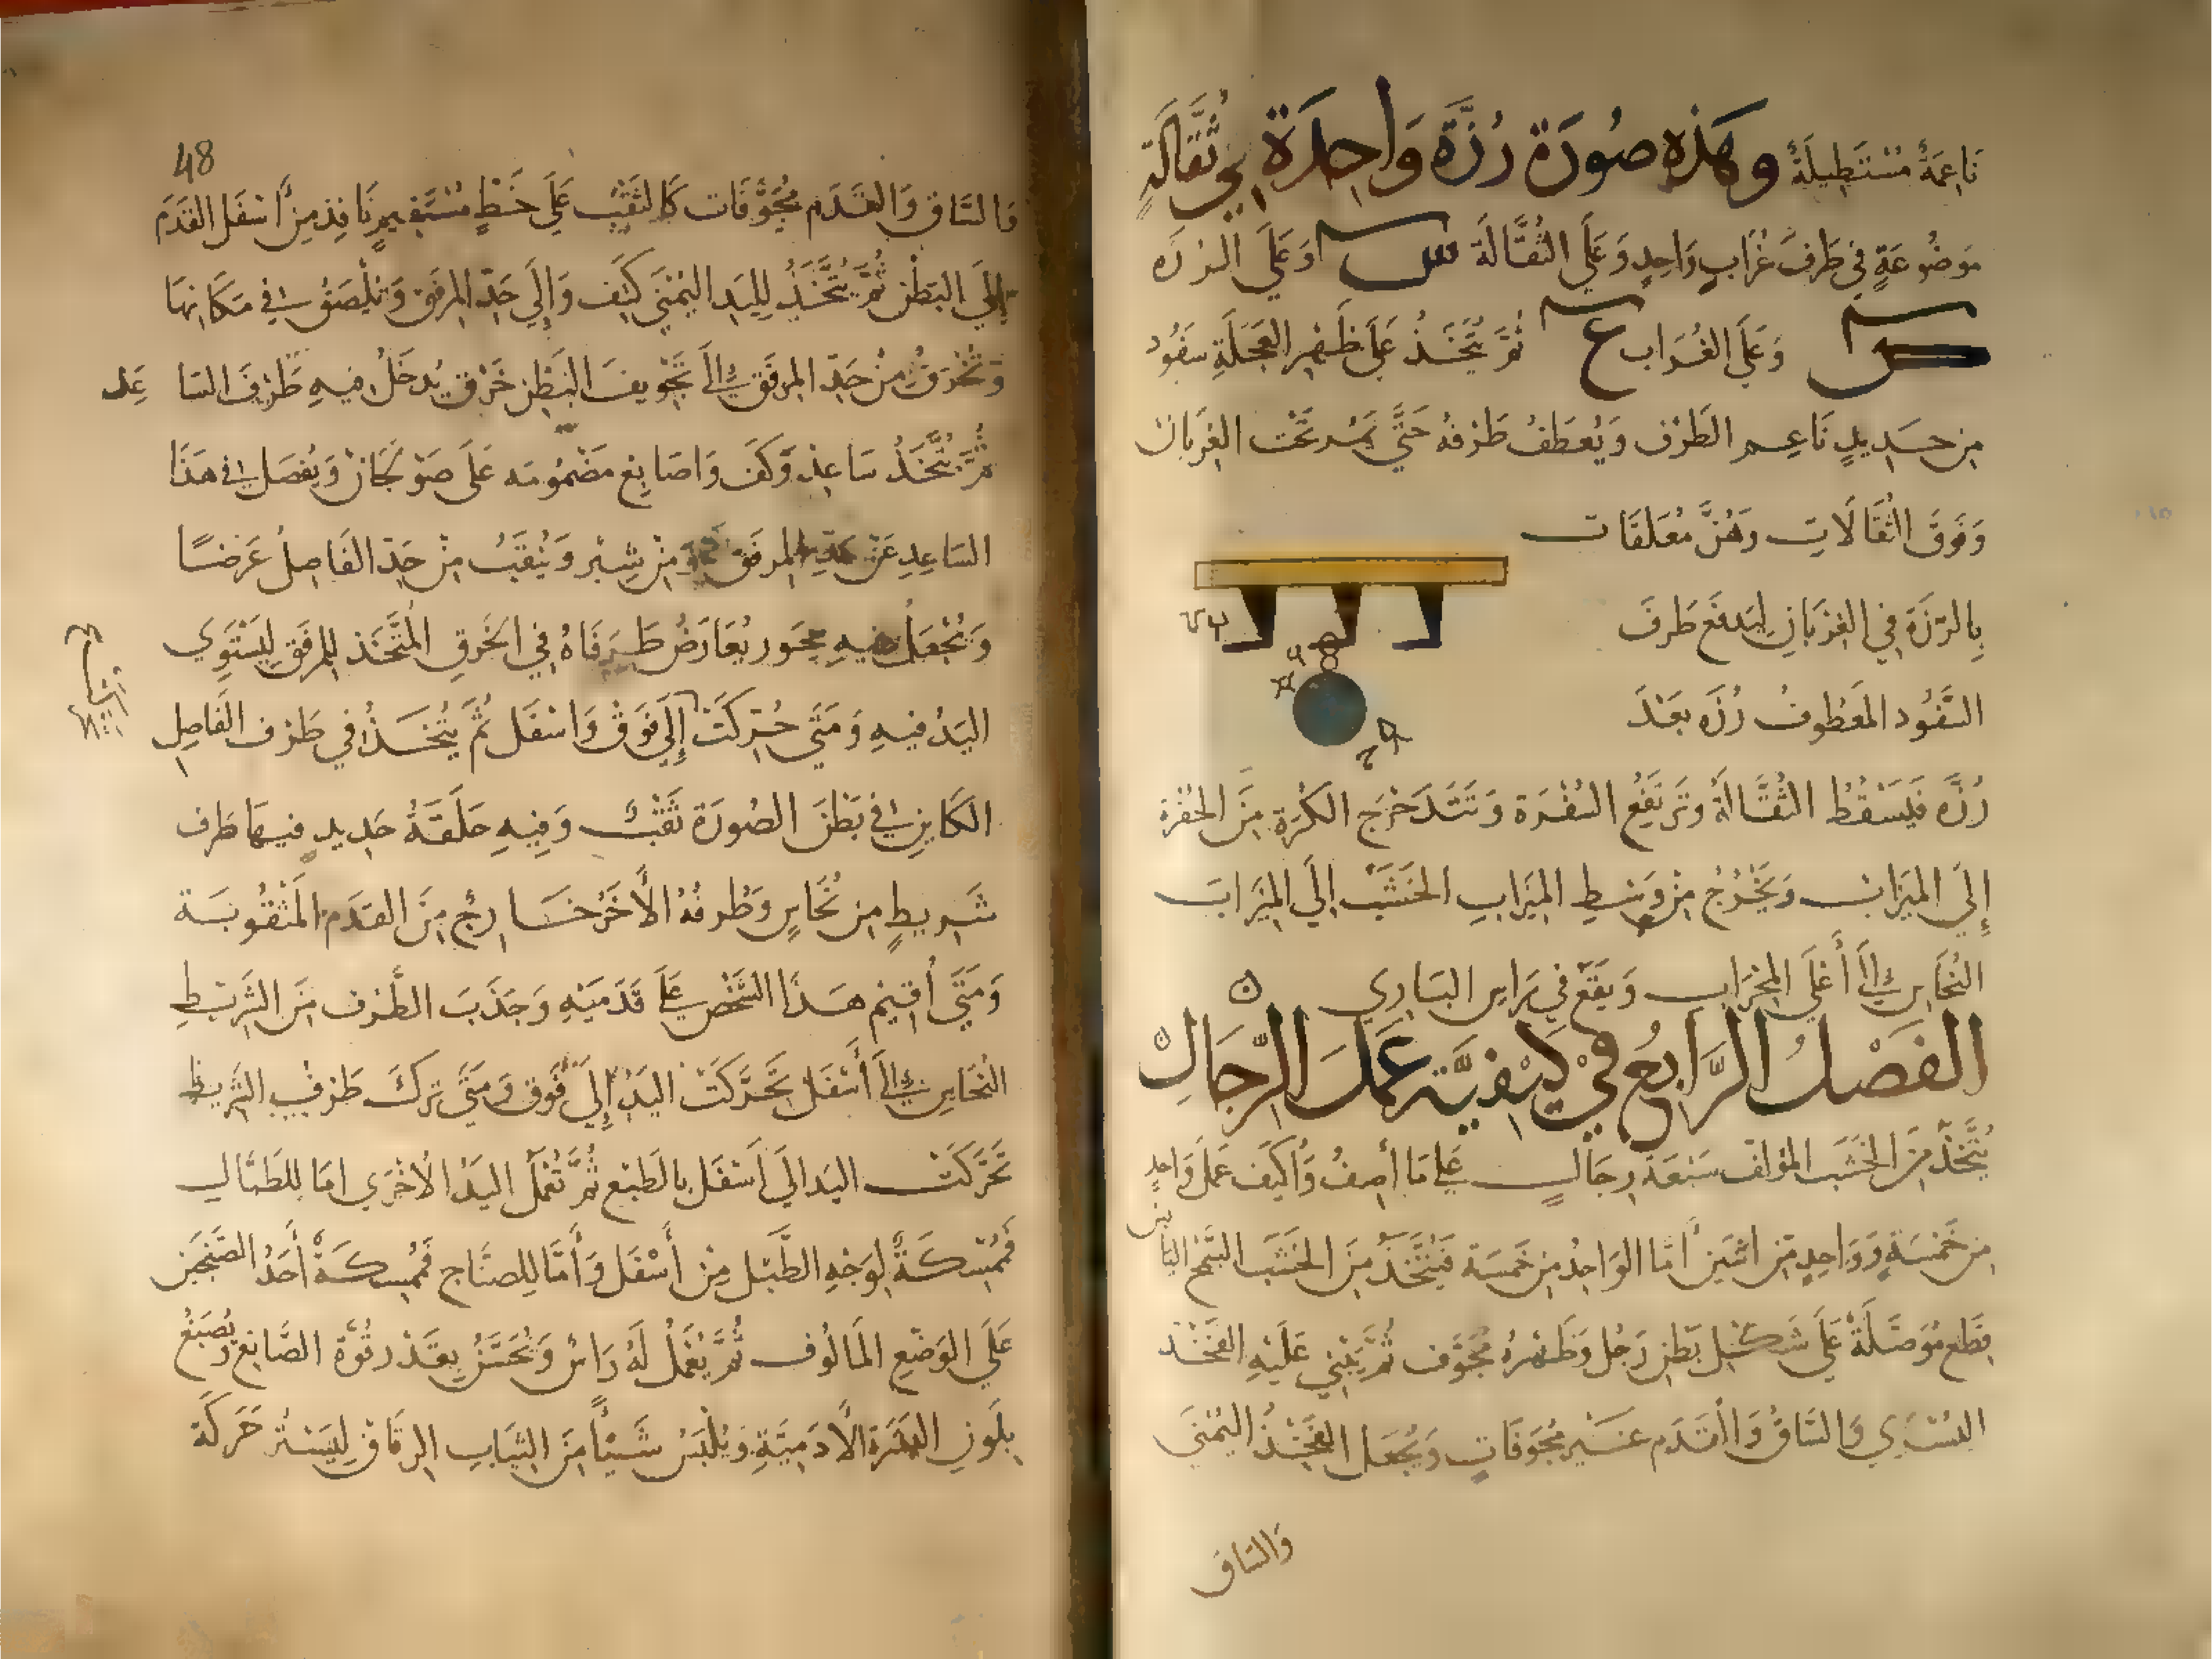 نَاعِمَةٌ مُسْتَطِيلَةٌ وَهَذِهِ صُورَة رُزَّة وَاحِدَة فِي ثُقَّالَةٍ
مَوضُوعَةٍ فِي طَرفَ غُرَابٍ وَاحِدٍ وَعَلَى الثُقَّالَة س وَعَلَى الرُزَه
س وَعَلَى الغُرَاب ع ثُمَّ يُتَّخَذُ عَلَى ظَهْرِ العَجَلَةِ سَفُود
مِن حَدِيدٍ نَاعِم الطَرْف وَيُعطَفُ طَرْفهُ حَتَّى يَمُر تَحْت الغِرْبَان
وَفَوقَ الثُقَّالَاتِ وَهُنَّ مُعَلقَات
بِالرُزَة فِي الغِرْبَانِ لِيَدفَعَ طَرف
السَّفُود المَعْطُوفُ رُزَه بَعْدَ
رُزَّه فَيَسْقُطُ الثُقَّالَة وَتَرتَفِعُ النُقْرَة وَتَتَدَحْرَج الكُرَة مِنَ الحُفْرَة
إِلَى المِيزَابُ وَيَخْرُجُ مِنْ وَسْطِ المِيزَابِ الخَشَبُ إِلَى المِيزَابَ
النُحَاسِ إِلَى أَعْلَى المِحْرَابِ وَيَقَعُ فِي رَاسِ البَازِي
الفَصْلُ الرَّابِعُ فِي كَيْفِيَّة عَمَلَ الرِّجَالِ
يُتَّخَذُ مِنَ الخَشَبَ المُؤلف سَبْعَة رِجَالٍ عَلَى مَا أَصِفُ وَأُكَيِّف عَمَلَ وَاحِدٍ
مِن خَمْسَةٍ وَوَاحِدٍ مِن اثْنَين أَمَّا الوَاحِدُ مِن خَمسَة فَيُتَّخَذُ مِنَ الخَشَبَ السَّمح اليَابس
قِطَع مُوَصَّلَةٌ عَلَى شَكْل بَطْنِ رَجُل وَظَهْرهُ مُجَوَّف ثُمَّ يَبْنِي عَلَيْهِ الفَخْذ
اليُسْرَي وَالسَّاقُ وَالقَدَم غَيْر مُجَوَفَاتٍ وَيُجْعَل الفَخْذُ اليُمْنَي
وَالسَاق
48
وَالسَّاق وَالقَدَم مُجَوَّفَات كَالثَقْب عَلَى خَطٍّ مُسْتَقِيمٍ نَافِذ مِنْ أَسْفَل القَدَم
إِلَى البَطْن ثُمَّ يُتَّخَذُ لِليَد اليُمْنَى كَتِف وَإِلَى حَدّ المِرفَق وَتُلْصَقُ فِي مَكَانِهَا
وَتُخْرَقُ مِنْ حَدّ المِرفَق إِلَى تَجْوِيف البَطْنِ خَرْق يُدخَلُ فِيهِ طَرْفَ السَا عِد
ثُمَّ يُتَّخَذُ سَاعِد وَكَف وَاصَابِع مَضْمُومَه عَلَى صَوْلَجَان وَيُفْصَل فِي هَذَا
السَاعِدِ عَنْ حَدِ المِرفَق نحو مِنْ شِبْر وَيُثقَبُ مِنْ حَدّ الفَاصِلُ عَرضًا
وَيُجْعَلُ فِيهِ مِحْوَر يُعَارَضُ طَرفَاهُ فِي الخَرق المُتَّخَذ لِلمِرفَق لِيَسْتَوِي
اليَدُ فِيهِ وَمَتَى حُرِّكَتْ إِلَى فَوقُ وَاسْفَل ثُمَّ يُتَّخَذُ فِي طَرف الفَاصِل
الكَاينِ فِي بَطْنَ الصُورَة ثَقْبٌ وَفِيهِ حَلَقَةُ حَدِيدٍ فِيهَا طَرف
شَرِيطٍ مِن نُحَاسٍ وَطَرفُهُ الأَخَرُ خَارِجٌ مِنَ القَدَم المَثْقُوبَة
وَمَتَى أُقِيْمَ هَذَا الشَّخْص عَلَى قَدَمَيْهِ وَجَذَبَ الطَّرف مِنَ الشَّرِيطِ
النُحَاسِ إِلَى أَسْفَل تَحَرَّكَتْ اليَدُ إِلَى فَوق وَمَتَى تَركَ طَرف الشَّرِيط
تَحَرَّكَتْ اليَد إِلَى أَسْفَل بِالطَبْعِ ثُمَّ تُعْمَلُ اليَدْ الأُخْرَي امَّا للطَبَّال
فَمُمْسِكَةٌ لِوَجْهِ الطَّبْل مِنْ أَسْفَل وَأَمَّا للِصنَّاج فَمُمسِكَةٌ أَحَدُ الصَّنْجَيْن
عَلَى الوَضْع المَالُوف ثُمَّ يُعْمَلُ لَهُ رَاسٌ وَيُحَسَّنُ بِقَدْر قُوَّة الصَّانِع وَيُصبَغُ
بِلَونِ البَشَرَة الأَدَمِيَّةِ وَيُلْبَسُ شَيْئًا مِنَ الثِيَابِ الرِقَاقِ لِيَسْتُر حَرَكَة